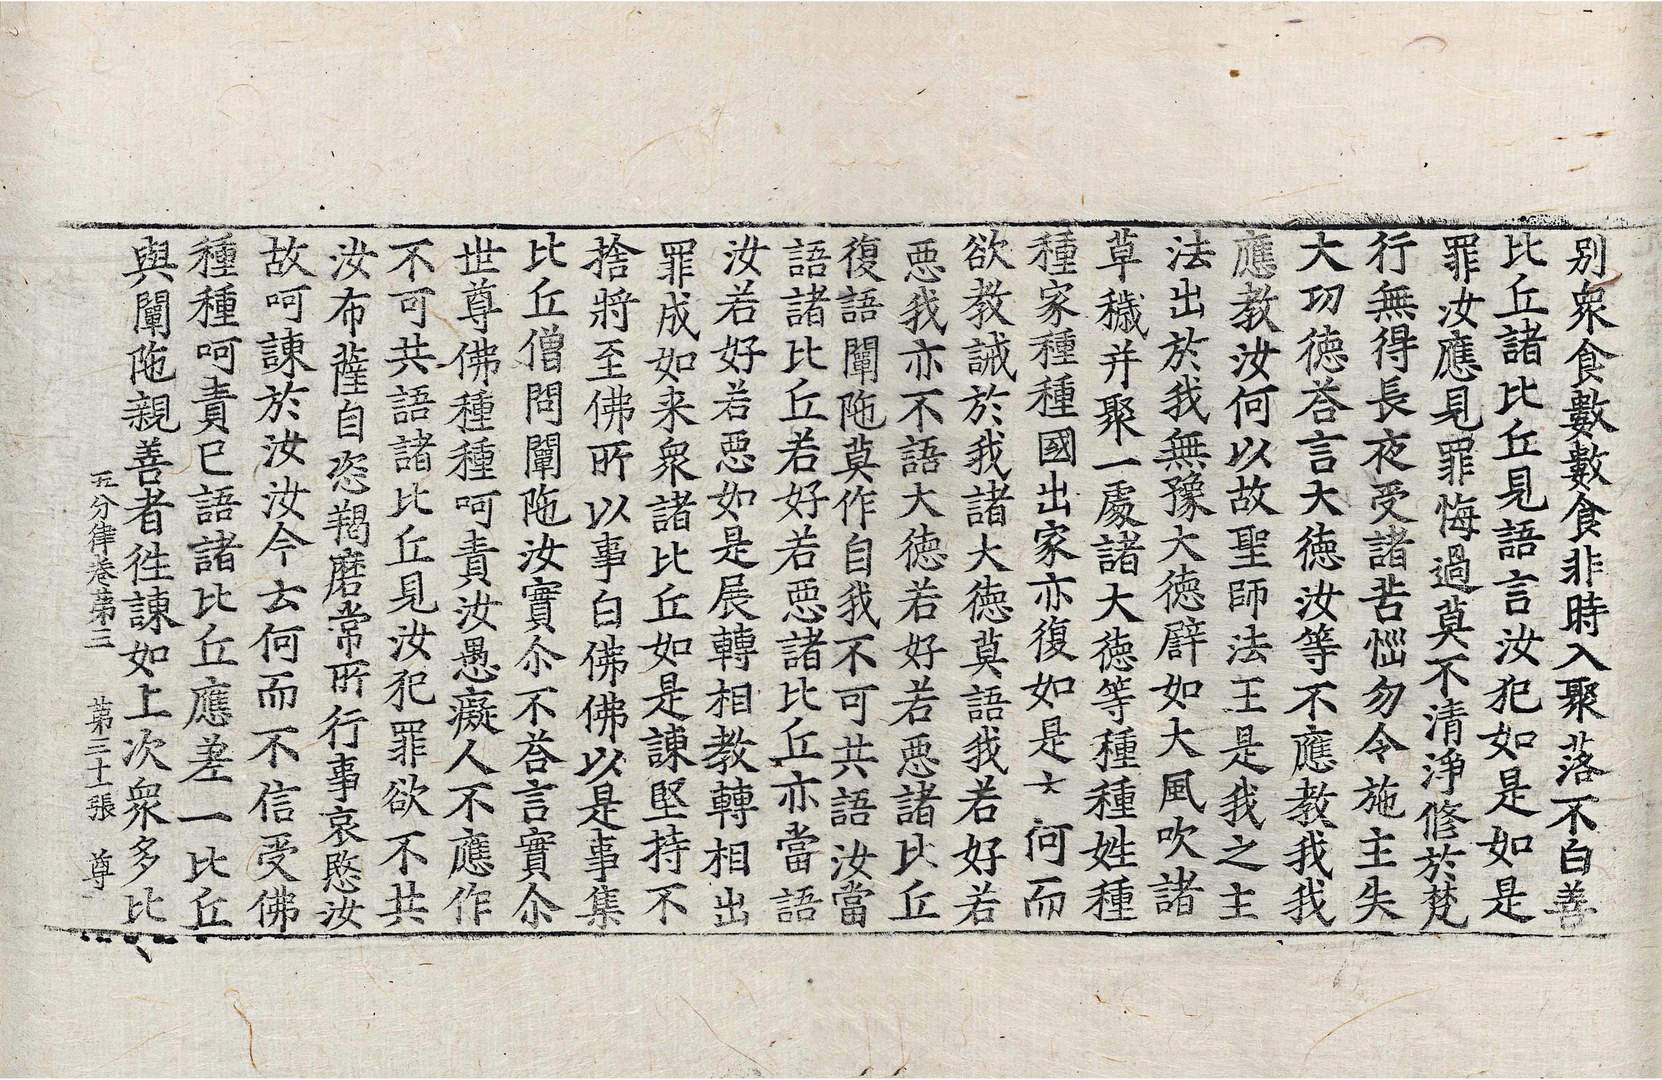 別衆食數數食非時入聚落不白善
比丘諸比丘見語言汝犯如是如是
罪汝應見罪悔過莫不清淨修於梵
行無得長夜受諸苦惱勿令施主失
大功德荅言大德汝等不應教我我
應教汝何以故聖師法王是我之主
法出於我無豫大德譬如大風吹諸
草穢并聚一處諸大德等種種姓種
種家種種國出家亦復如是云何而
欲教誡於我諸大德莫語我若好若
惡我亦不語大德若好若惡諸比丘
復語闡陁莫作自我不可共語汝當
語諸比丘若好若惡諸比丘亦當語
汝若好若惡如是展轉相教轉相出
罪成如来衆諸比丘如是諫堅持不
捨將至佛所以事白佛佛以是事集
比丘僧問闡陁汝實尒不荅言實尒
世尊佛種種呵責汝愚癡人不應作
不可共語諸比丘見汝犯罪欲不共
汝布薩自恣羯磨常所行事哀愍汝
故呵諫於汝汝今云何而不信受佛
種種呵責已語諸比丘應差一比丘
與闡陁親善者徃諫如上次衆多比
五分律卷苐三 苐三十張 尊